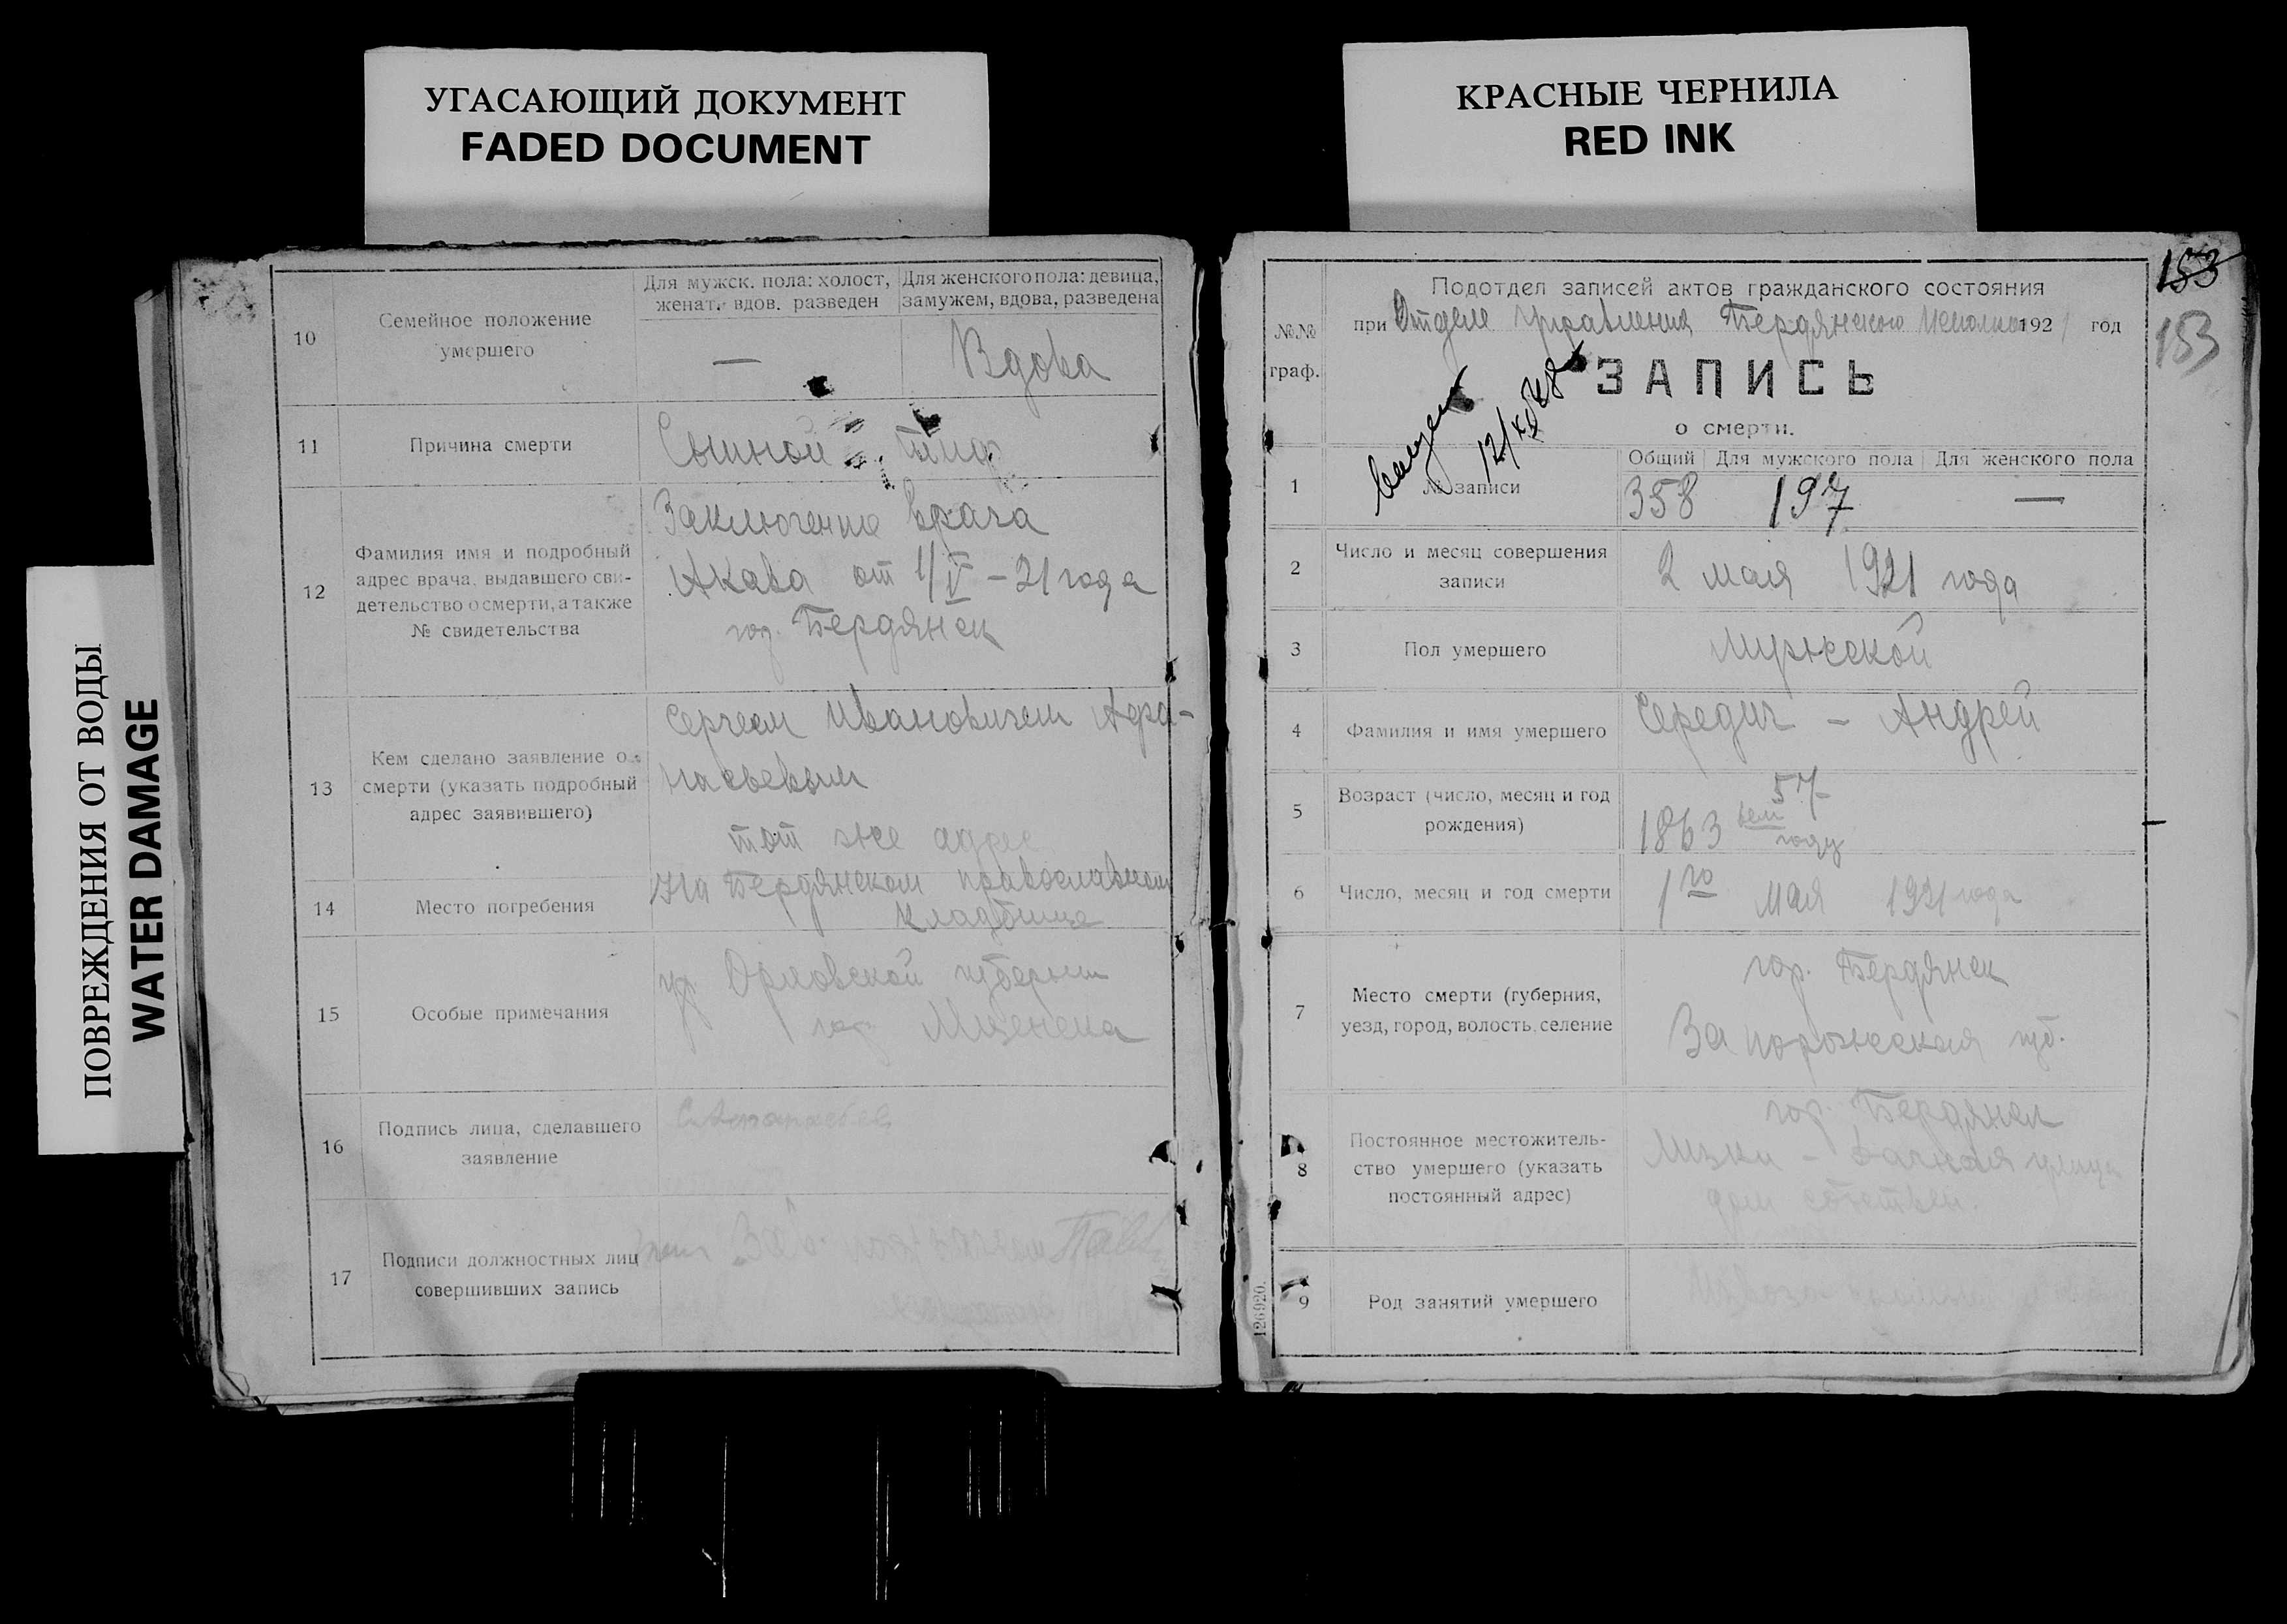 УГАСАЮЩИЙ ДОКУМЕНТ
FADED DOCUMENT
КРАСНЫЕ ЧЕРНИЛА
RED INK
ПОВРЕЖДЕНИЯ ОТ ВОДЫ
WATER DAMAGE
10
Семейное положение
умершего
Для мужск. пола: холост,
женат, вдов. разведен
Для женского пола: девица,
замужем, вдова, разведена
—
Вдова
11
Причина смерти
Сыпной тиф
12
Фамилия имя и подробный
адрес врача, выдавшего сви-
детельство о смерти, а также
№ свидетельства
Заключение врача
Акава от 1/V – 21 года
гор. Бердянск
13
Кем сделано заявление о
смерти (указать подробный
адрес заявившего)
Сергеем Ивановичем Афа-
насьевым
тот же адрес
14
Место погребения
На Бердянском православном
кладбище
15
Особые примечания
гр. Орловской губернии
гор. Мценска
16
Подпись лица, сделавшего
заявление
17
Подписи должностных лиц
совершивших запись
153
153
№№
граф.
Подотдел записей актов гражданского состояния
при Отделе Управления Бердянского Исполкома 1921 год
ЗАПИСЬ
о смерти.
1
№ записи
Общий
Для мужского пола
Для женского пола
358
197
—
2
Число и месяц совершения
записи
2 мая 1921 года
3
Пол умершего
Мужской
4
Фамилия и имя умершего
Середич – Андрей
5
Возраст (число, месяц и год
рождения)
57
1863 году
6
Число, месяц и год смерти
1го мая 1921 года
7
Место смерти (губерния,
уезд, город, волость, селение
гор. Бердянск
Запорожская губ.
8
Постоянное местожитель-
ство умершего (указать
постоянный адрес)
гор. Бердянск
улица
дом собствен.
9
Род занятий умершего
126920.